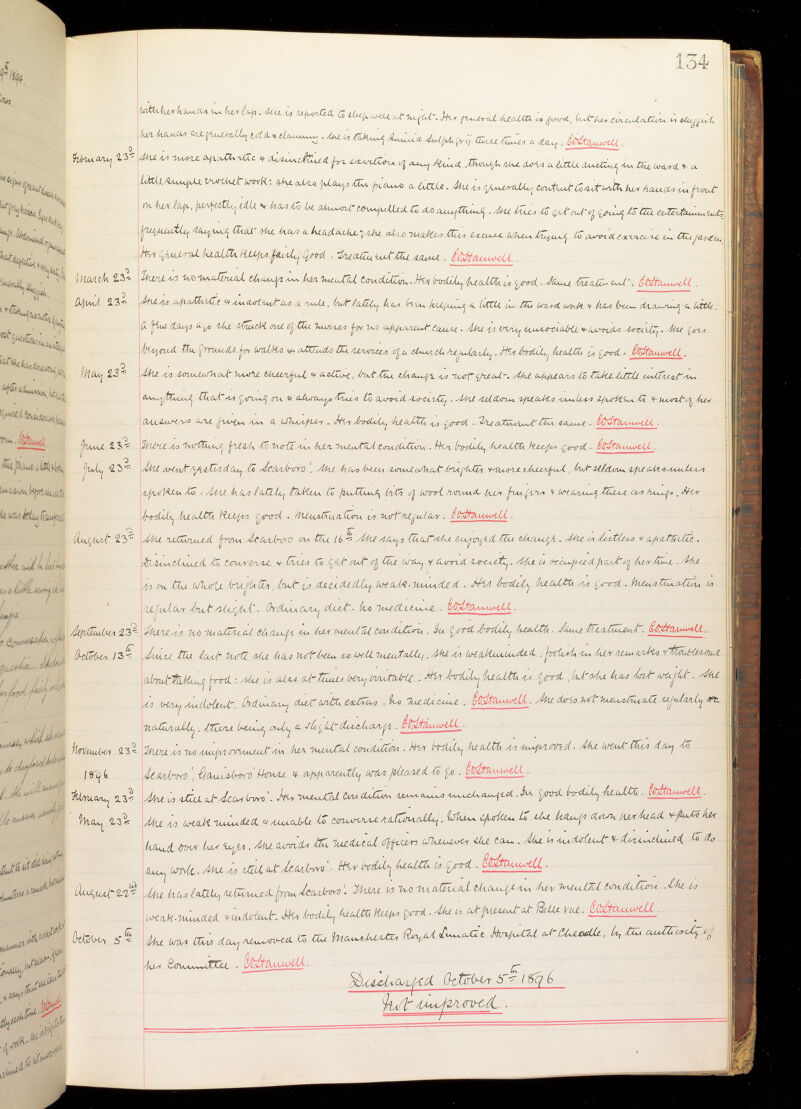 134
with her hands in her lap. She is reported to sleep well at night. Her general health is good, but her circulation is sluggish
her hands are generally cold & clammy. She is taking Quinid Sulph gr ij three times a day. COStanwell.
February 23d She is more apathetic & disinclined for exertion of any kind, though she does a little dusting in the ward & a
little simple crochet work: she also plays the piano a little. She is generally content to sit with her hands in front
on her lap, perfectly idle & has to be almost compelled to do anything. She tries to get out of going to the entertainments
frequently saying that she has a headache; she also makes this excuse when trying to avoid exercise in the garden.
Her general health keeps fairly good. Treatment the same. COStanwell.
March 23d There is no material change in her mental condition. Her bodily health is good. Same treatment. COStanwell.
April 23d She is apathetic & indolent as a rule, but lately has been helping a little in the ward work & has been drawing a little.
A few days ago she struck one of the nurses for no apparent cause. She is very unsociable & avoids society. She goes
beyond the grounds for walks & attends the services of a church regularly. Her bodily health is good. COStanwell.
May 23d She is somewhat more cheerful & active, but the change is not great. She appears to take little interest in
anything that is going on & always tries to avoid society. She seldom speaks unless spoken to & most of her
answers are given in a whisper. Her bodily health is good. Treatment the same. COStanwell.
June 23d There is nothing fresh to note in her mental condition. Her bodily health keeps good. COStanwell.
July 23d She went yesterday to Scarboro'. She has been somewhat brighter & more cheerful, but seldom speaks unless
spoken to. She has lately taken to putting bits of wool round her fingers & wearing these as rings. Her
bodily health keeps good. Menstruation is not regular. COStanwell.
August 23d She returned from Scarboro on the 16th She says that she enjoyed the change. She is listless & apathetic.
Disinclined to converse & tries to get out of the way & avoid society. She is occupied part of her time. She
is on the whole brighter, but is decidedly weak-minded. Her bodily health is good. Menstruation is
regular but slight. Ordinary diet. No medicine. COStanwell.
September 23d There is no material change in her mental condition. In good bodily health. Same treatment. COStanwell.
October 13th Since the last note she has not been so well mentally. She is weakminded, foolish in her remarks & troublesome
about taking food: she is also at times very irritable. Her bodily health is good, but she has lost weight. She
is very indolent. Ordinary diet with extras. No medicine. COStanwell. She does not menstruate regularly or
naturally: there being only a slight discharge. COStanwell.
November 23d There is no improvement in her mental condition. Her bodily health is improved. She went this day to
Scarboro', Gainsboro' House & apparently was pleased to go. COStanwell.
1896
February 23d She is still at Scarboro'. Her mental condition remains unchanged. In good bodily health. COStanwell.
May 23d She is weak minded & unable to converse rationally. When spoken to she hangs down her head & puts her
hand over her eyes. She avoids the medical officers whenever she can. She is indolent & disinclined to do
any work. She is still at Scarboro'. Her bodily health is good. COStanwell.
August 22nd She has lately returned from Scarboro'. There is no material change in her mental condition. She is
weak-minded & indolent. Her bodily health keeps good. She is at present at Belle vue. COStanwell.
October 5th She was this day removed to the Manchester Royal Lunatic Hospital at Cheadle, by the authority of
her Committee. COStanwell.
Discharged October 5th 1896
Not improved.